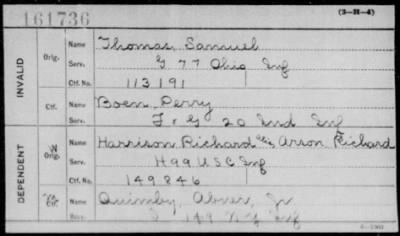 161736
(3-H-4)
INVALID
Orig.
Name Thomas, Samuel
Serv. G 77 Ohio Inf
Ctf. No. 113191
Ctf.
Name Boen, Perry
Serv. F & G 20 Ind Inf
DEPENDENT
W
Orig.
Name Harrison Richard alias Arson Richard
Serv. H 99 U S C Inf
Ctf. No. 149846
Ctf.
Name Quimby, Abner, Jr
Serv. 149 N.Y. Inf